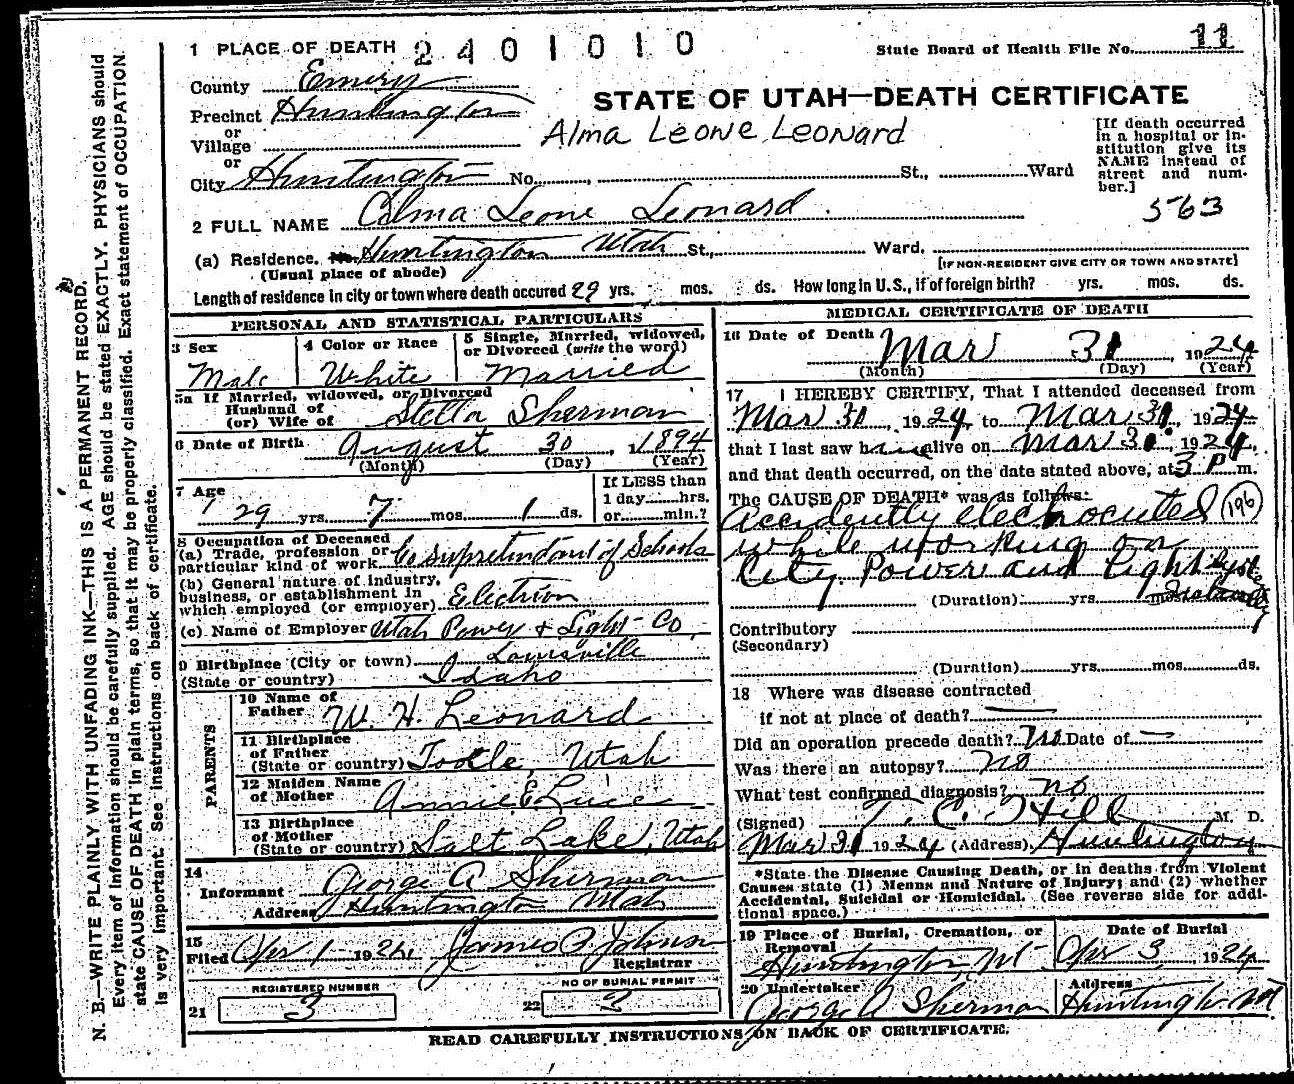 1 PLACE OF DEATH 2401010
State Board of Health File No. 11
County Emery
Precinct Huntington
or
Village
or
City Huntington No. , St., Ward
STATE OF UTAH—DEATH CERTIFICATE
Alma Leone Leonard
[If death occurred in a hospital or institution give its NAME instead of street and number.]
563
2 FULL NAME Alma Leone Leonard.
(a) Residence. No. Huntington Utah St., Ward.
(Usual place of abode)
[IF NON-RESIDENT GIVE CITY OR TOWN AND STATE]
Length of residence in city or town where death occured 29 yrs. mos. ds. How long in U.S., if of foreign birth? yrs. mos. ds.
PERSONAL AND STATISTICAL PARTICULARS
3 Sex
Male
4 Color or Race
White
5 Single, Married, widowed, or Divorced (write the word)
Married
5a If Married, widowed, or Divorced
Husband of
(or) Wife of Stella Sherman
6 Date of Birth August 30, 1894
(Month) (Day) (Year)
7 Age
29 yrs. 7 mos. 1 ds.
If LESS than
1 day hrs.
or min.?
8 Occupation of Deceased
(a) Trade, profession or particular kind of work Co supretendant of Schools
(b) General nature of industry, business, or establishment in which employed (or employer) Electrion
(c) Name of Employer Utah Power & Light Co.
9 Birthplace (City or town) Lewisville
(State or country) Idaho
PARENTS
10 Name of Father W. H. Leonard
11 Birthplace of Father
(State or country) Tooele, Utah
12 Maiden Name of Mother Annie E Luce
13 Birthplace of Mother
(State or country) Salt Lake, Utah
14
Informant George A Sherman
Address Huntington Utah
15
Filed Apr 1 1924. James P. Johnson
Registrar
REGISTERED NUMBER
21 3
NO OF BURIAL PERMIT
22 2
MEDICAL CERTIFICATE OF DEATH
16 Date of Death Mar 31, 1924
(Month) (Day) (Year)
17 I HEREBY CERTIFY, That I attended deceased from
Mar 31, 1924, to Mar 31, 1924
that I last saw him alive on Mar 31, 1924,
and that death occurred, on the date stated above, at 3 P m.
The CAUSE OF DEATH* was as follows:
Accidently electrocuted (196)
while working on
City Power and Light System
(Duration) yrs. mos Instantly
Contributory
(Secondary)
(Duration) yrs. mos. ds.
18 Where was disease contracted
if not at place of death? —
Did an operation precede death? No Date of —
Was there an autopsy? No
What test confirmed diagnosis? no
(Signed) T. C. Hill M. D.
Mar 31 1924 (Address) Huntington
*State the Disease Causing Death, or in deaths from Violent Causes state (1) Menns and Nature of Injury; and (2) whether Accidental, Suicidal or Homicidal. (See reverse side for additional space.)
19 Place of Burial, Cremation, or Removal
Huntington, Ut
Date of Burial
Apr 3, 1924
20 Undertaker
George A Sherman
Address
Huntington Ut
READ CAREFULLY INSTRUCTIONS ON BACK OF CERTIFICATE.
N. B.—WRITE PLAINLY WITH UNFADING INK—THIS IS A PERMANENT RECORD.
Every item of information should be carefully supplied. AGE should be stated EXACTLY. PHYSICIANS should
state CAUSE OF DEATH in plain terms, so that it may be properly classified. Exact statement of OCCUPATION
is very important. See instructions on back of certificate.